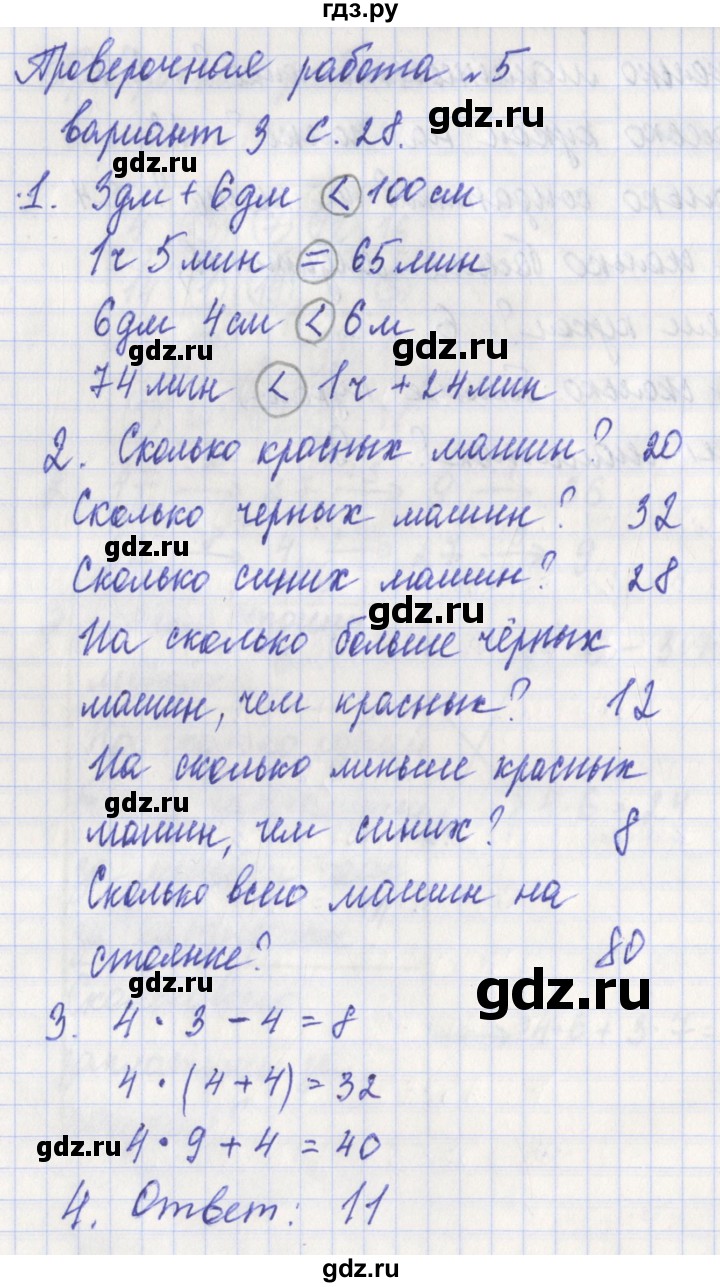 гдз.ру
Проверочная работа №5
вариант 3 с. 28.
gdz.ru
gdz.ru
1. 3дм + 6дм < 100см
gdz.ru
1ч 5мин = 65мин
6дм 4см < 6м
gdz.ru
gdz.ru
74мин < 1ч + 24мин
2. Сколько красных машин? 20
Сколько черных машин? 32
gdz.ru
Сколько синих машин? 28
gdz.ru
На сколько больше чёрных
машин, чем красных? 12
На сколько меньше красных
gdz.ru
машин, чем синих? 8
Сколько всего машин на
стоянке? 80
gdz.ru
3. 4 · 3 - 4 = 8
4 · (4 + 4) = 32
gdz.ru
4 · 9 + 4 = 40
4. Ответ: 11
gdz.ru